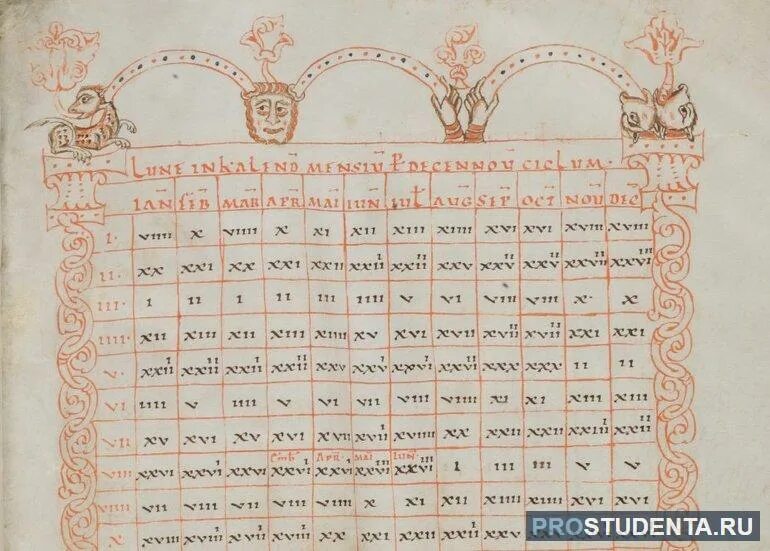 LUNE IN KALEND MENSIU P DECENNOU CICLUM·
IAN FEB MAR APR MAI IUN IUL AUG SEP OCT NOU DEC
I· viiii x viiii x xi xii xiii xiiii xvi xvi xviii xviii
II· xx xxi xx xxi xxii xxiii xxiiii xxv xxvii xxvii xxviiii xxviiii
III· i ii i ii iii iiii v vi viii viii x x
IIII· xii xiii xii xiii xiiii xv xvi xvii xviiii xviiii xxi xxi
V· xxiii xxiiii xxiii xxiiii xxv xxvi xxvii xxviii xxx xxx ii ii
VI iiii v iiii v vi vii viii viiii xi xi xiii xiii
VII xv xvi xv xvi xvii xviii xviiii xx xxii xxii xxiiii xxiiii
Apr Mai Iun
VIII xxvi xxvii xxvi i iii iii v v
VIIII vii viii vii viii viiii x xi xii xiiii xiiii xvi xvi
X xviii xviiii xviii xviiii xx xxi xxii xxiii xxv
PROSTUDENTA.RU